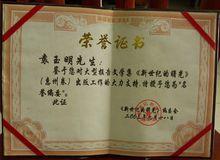 荣誉证书
袁玉明先生：
鉴于您对大型报告文学集《新世纪的曙光》
（惠州卷）出版工作的大力支持，特授予您为“名
誉编委”。
此证
《新世纪的曙光》编委会